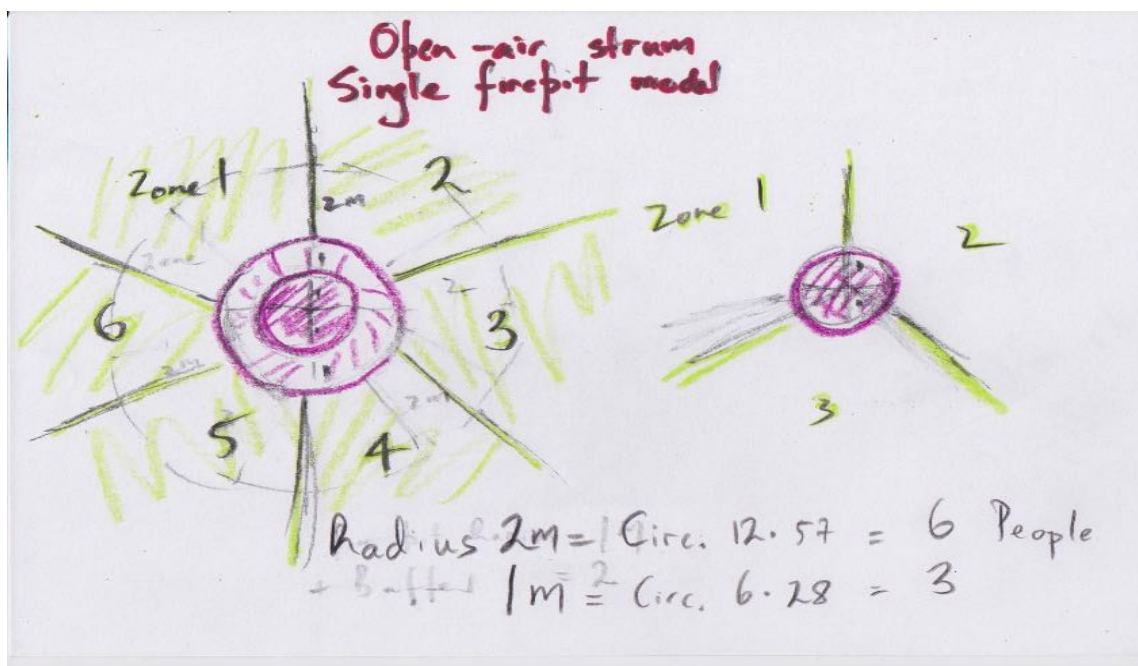 Open-air strum
Single firepit model
Zone 1
2
2m
3
2m
4
5
2m
6
Zone 1
2
3
Radius 2m = Circ. 12.57 = 6 People
+ Buffer 1m = Circ. 6.28 = 3